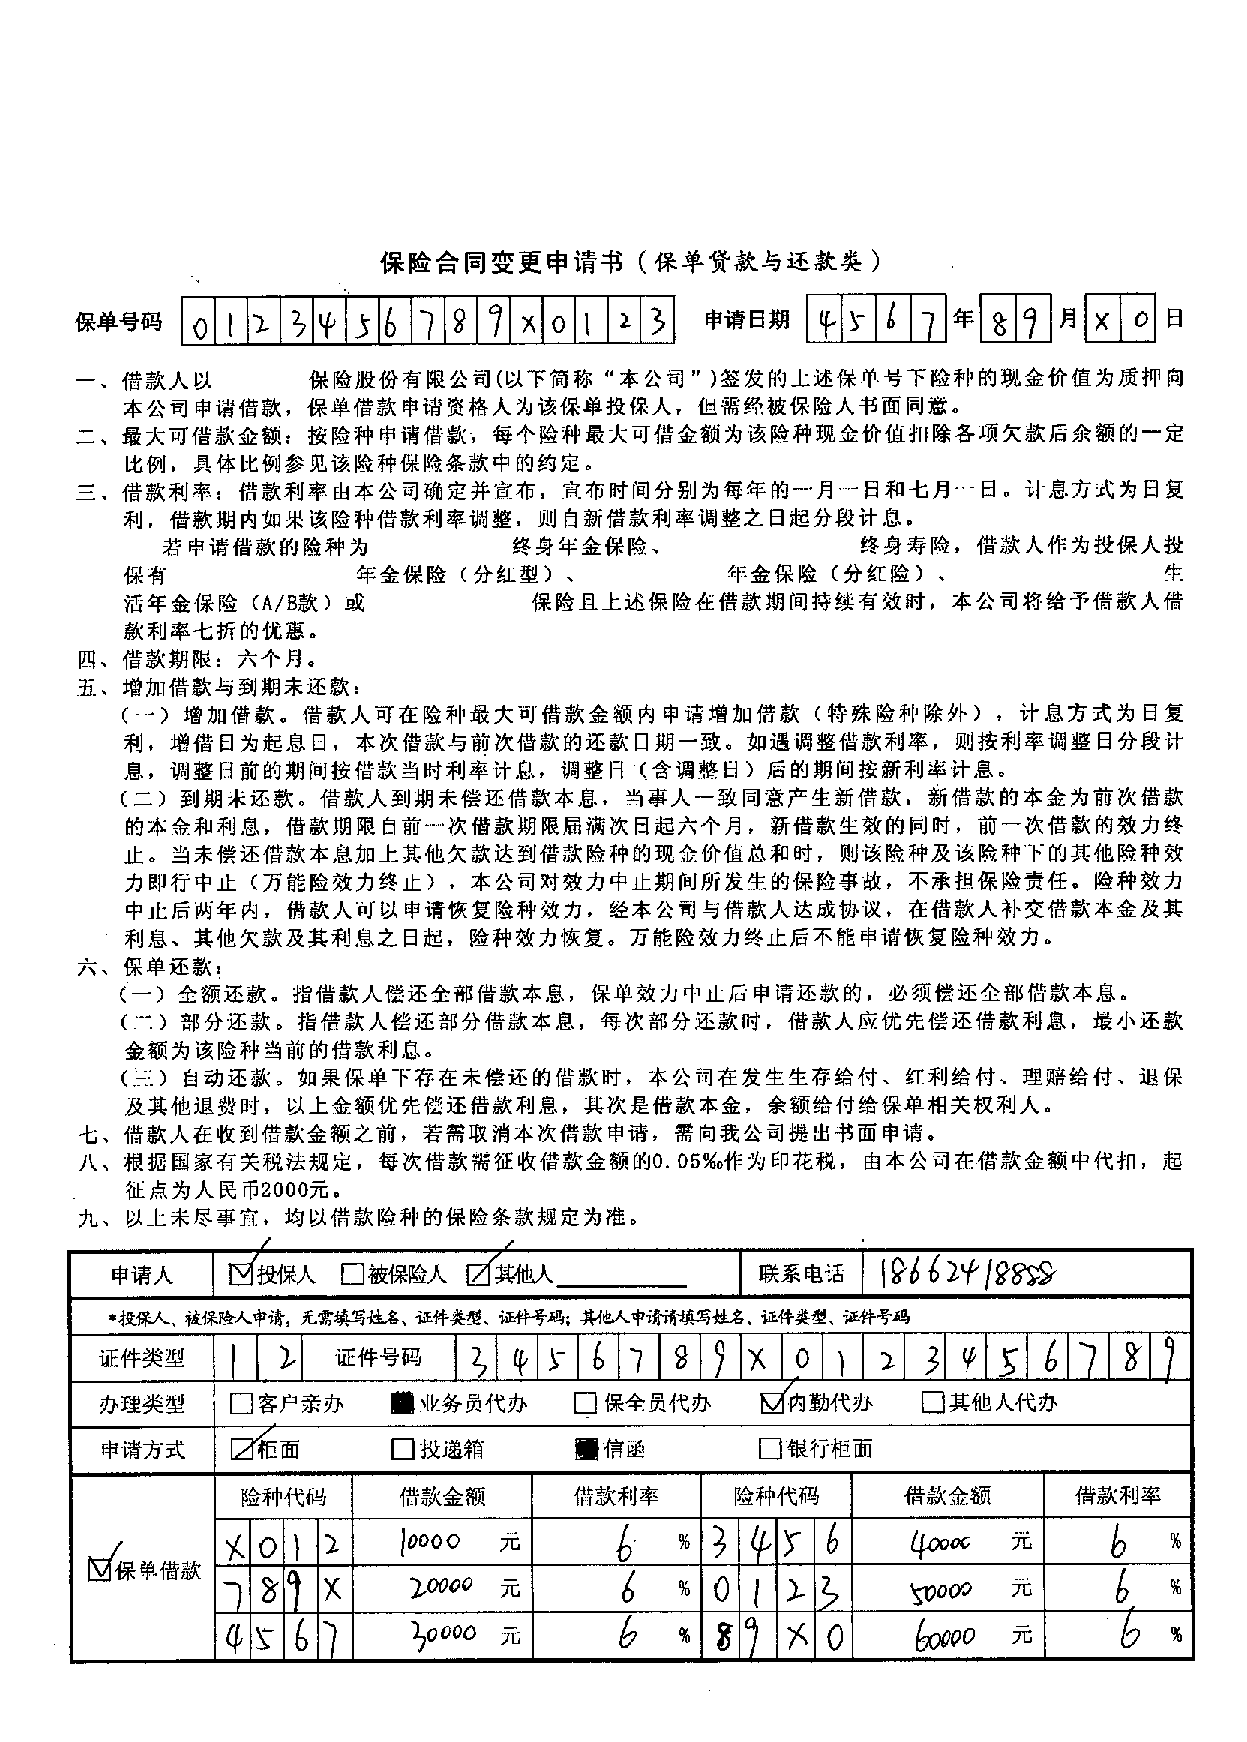 保险合同变更申请书（保单贷款与还款类）
保单号码 0 1 2 3 4 5 6 7 8 9 X 0 1 2 3 申请日期 4 5 6 7 年 8 9 月 X 0 日
一、借款人以 保险股份有限公司(以下简称“本公司”)签发的上述保单号下险种的现金价值为质押向
本公司申请借款，保单借款申请资格人为该保单投保人，但需经被保险人书面同意。
二、最大可借款金额：按险种申请借款，每个险种最大可借金额为该险种现金价值扣除各项欠款后余额的一定
比例，具体比例参见该险种保险条款中的约定。
三、借款利率：借款利率由本公司确定并宣布，宣布时间分别为每年的一月一日和七月一日。计息方式为日复
利，借款期内如果该险种借款利率调整，则自新借款利率调整之日起分段计息。
若申请借款的险种为 终身年金保险、 终身寿险，借款人作为投保人投
保有 年金保险（分红型）、 年金保险（分红险）、 生
活年金保险（A/B款）或 保险且上述保险在借款期间持续有效时，本公司将给予借款人借
款利率七折的优惠。
四、借款期限：六个月。
五、增加借款与到期未还款：
（一）增加借款。借款人可在险种最大可借款金额内申请增加借款（特殊险种除外），计息方式为日复
利，增借日为起息日，本次借款与前次借款的还款日期一致。如遇调整借款利率，则按利率调整日分段计
息，调整日前的期间按借款当时利率计息，调整日（含调整日）后的期间按新利率计息。
（二）到期未还款。借款人到期未偿还借款本息，当事人一致同意产生新借款，新借款的本金为前次借款
的本金和利息，借款期限自前一次借款期限届满次日起六个月，新借款生效的同时，前一次借款的效力终
止。当未偿还借款本息加上其他欠款达到借款险种的现金价值总和时，则该险种及该险种下的其他险种效
力即行中止（万能险效力终止），本公司对效力中止期间所发生的保险事故，不承担保险责任。险种效力
中止后两年内，借款人可以申请恢复险种效力，经本公司与借款人达成协议，在借款人补交借款本金及其
利息、其他欠款及其利息之日起，险种效力恢复。万能险效力终止后不能申请恢复险种效力。
六、保单还款：
（一）全额还款。指借款人偿还全部借款本息，保单效力中止后申请还款的，必须偿还全部借款本息。
（二）部分还款。指借款人偿还部分借款本息，每次部分还款时，借款人应优先偿还借款利息，最小还款
金额为该险种当前的借款利息。
（三）自动还款。如果保单下存在未偿还的借款时，本公司在发生生存给付、红利给付、理赔给付、退保
及其他退费时，以上金额优先偿还借款利息，其次是借款本金，余额给付给保单相关权利人。
七、借款人在收到借款金额之前，若需取消本次借款申请，需向我公司提出书面申请。
八、根据国家有关税法规定，每次借款需征收借款金额的0.05‰作为印花税，由本公司在借款金额中代扣，起
征点为人民币2000元。
九、以上未尽事宜，均以借款险种的保险条款规定为准。
申请人 ☑投保人 □被保险人 ☑其他人 联系电话 18662418888
*投保人、被保险人申请，无需填写姓名、证件类型、证件号码；其他人申请请填写姓名、证件类型、证件号码
证件类型 1 2 证件号码 3 4 5 6 7 8 9 X 0 1 2 3 4 5 6 7 8 9
办理类型 □客户亲办 ■业务员代办 □保全员代办 ☑内勤代办 □其他人代办
申请方式 ☑柜面 □投递箱 ■信函 □银行柜面
险种代码 借款金额 借款利率 险种代码 借款金额 借款利率
☑保单借款
X 0 1 2 10000 元 6 % 3 4 5 6 40000 元 6 %
7 8 9 X 20000 元 6 % 0 1 2 3 50000 元 6 %
4 5 6 7 30000 元 6 % 8 9 X 0 60000 元 6 %